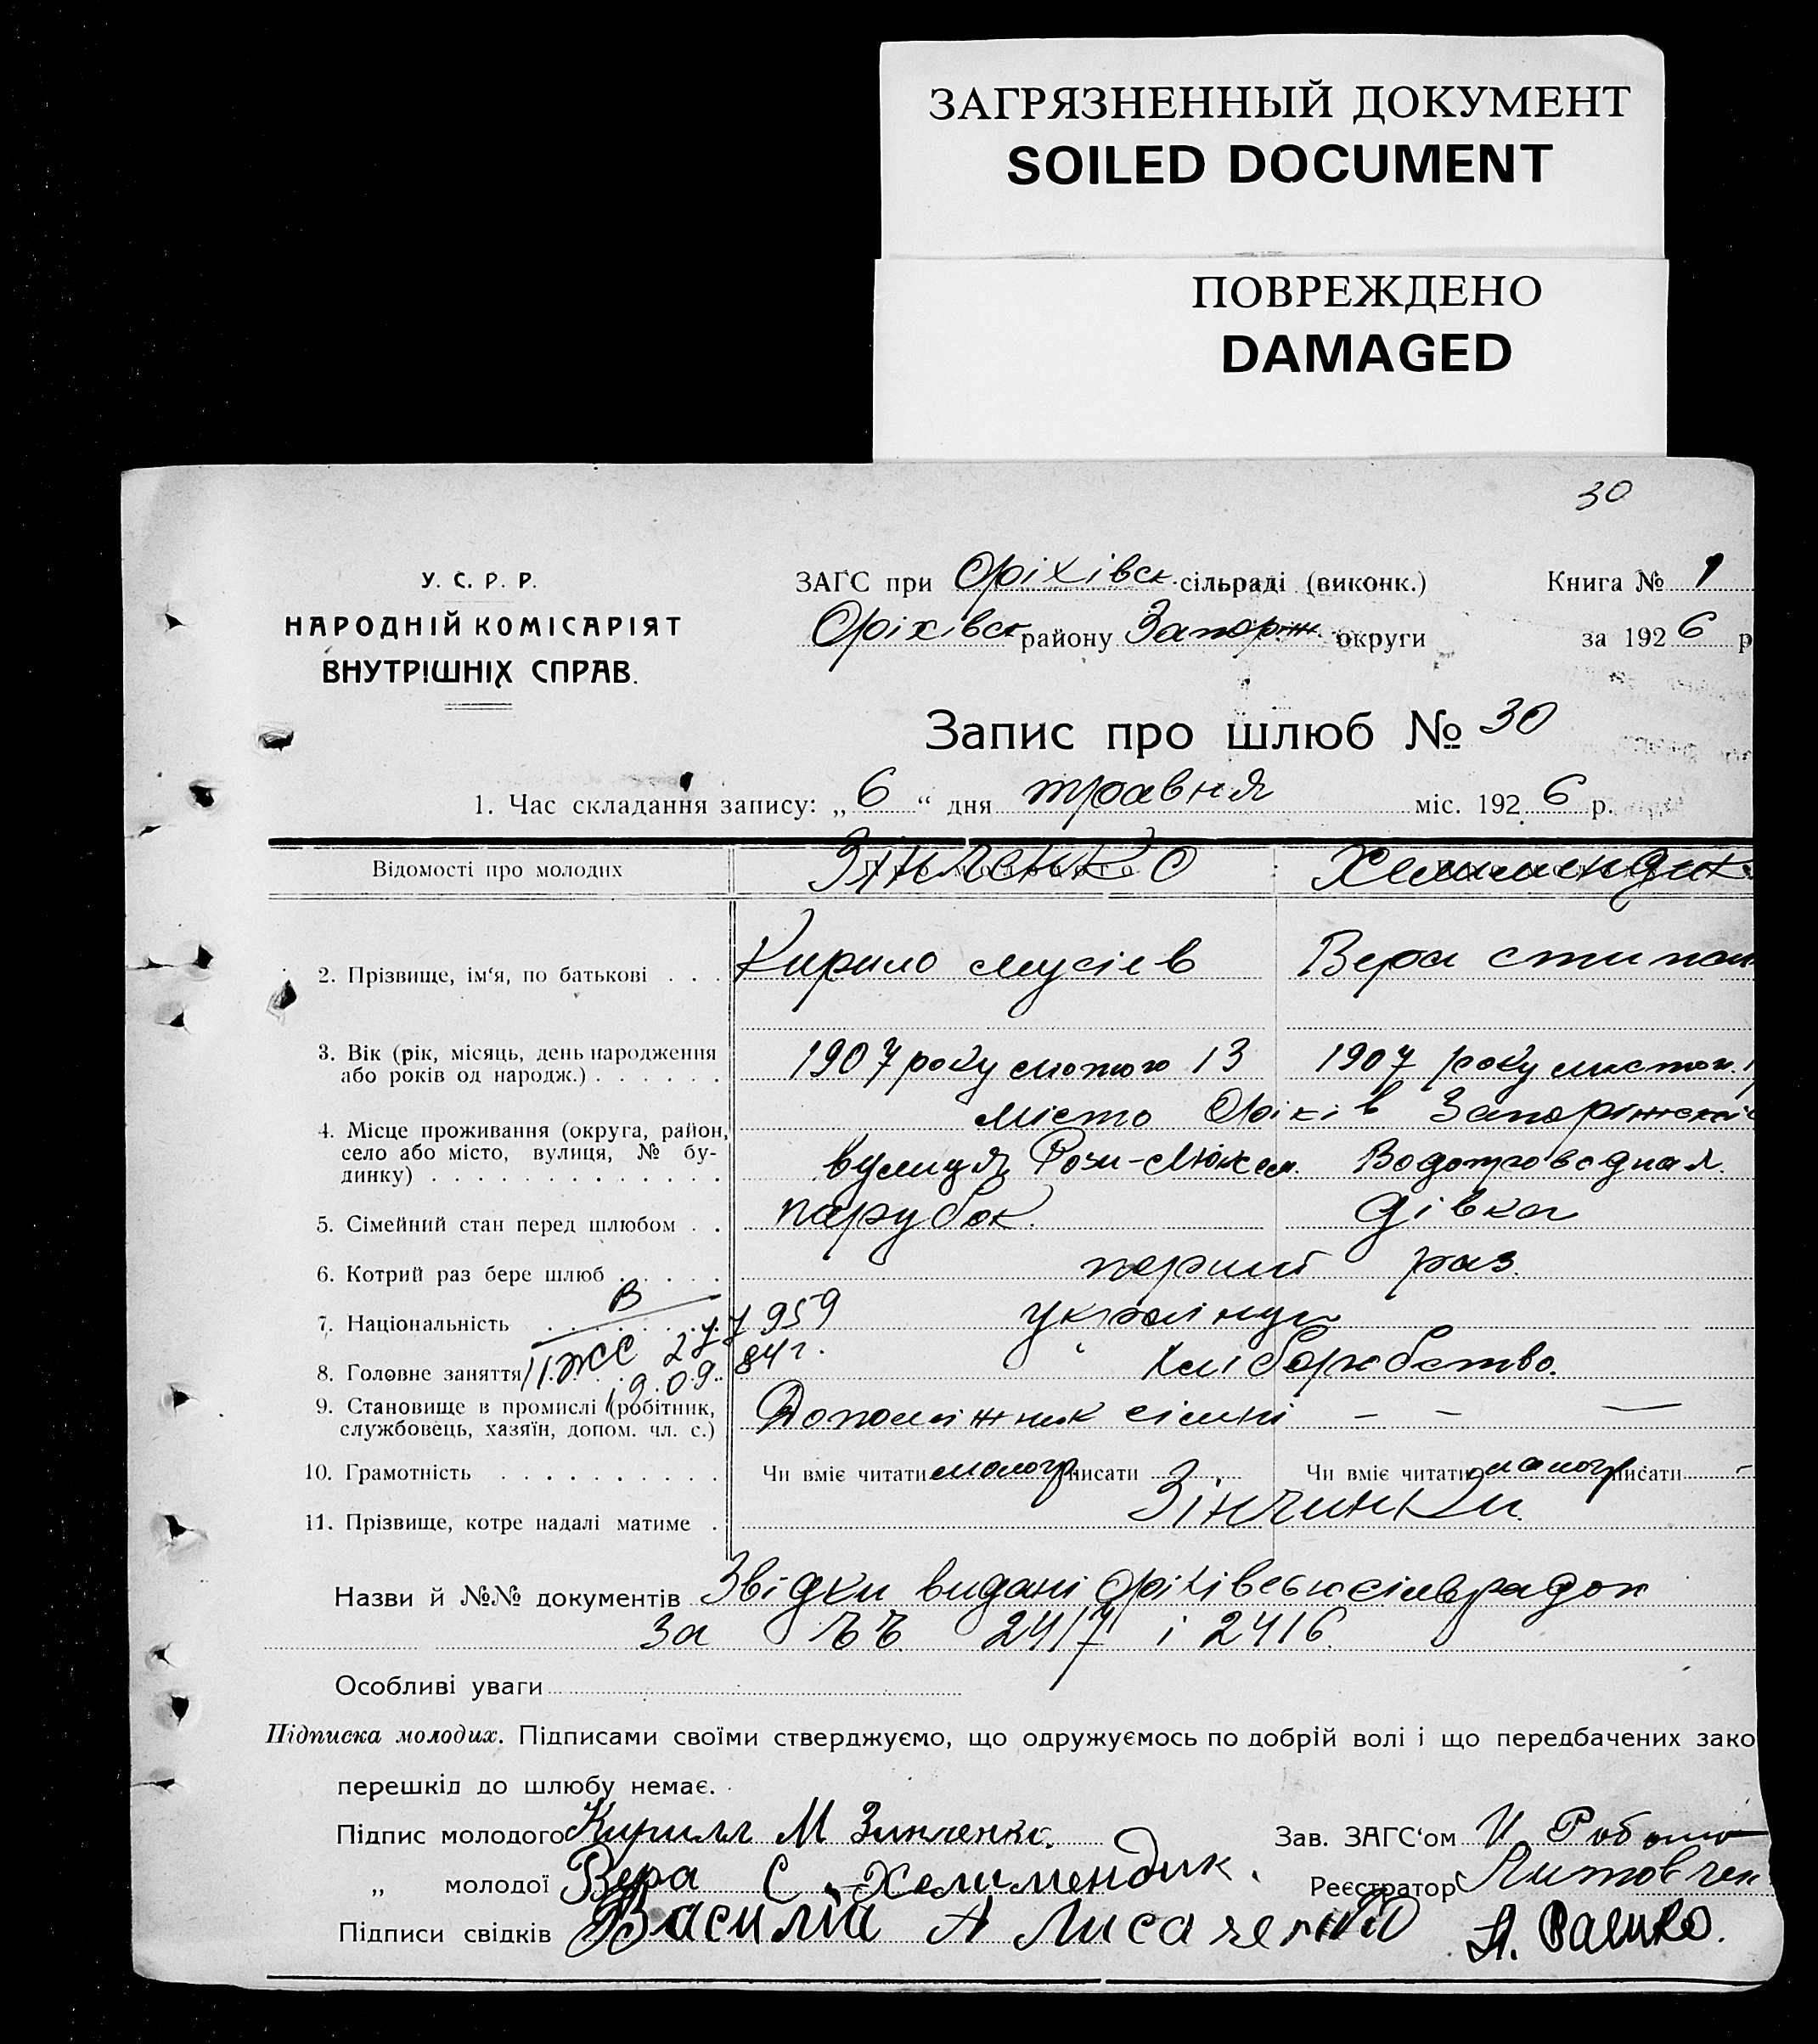 ЗАГРЯЗНЕННЫЙ ДОКУМЕНТ
SOILED DOCUMENT
ПОВРЕЖДЕНО
DAMAGED
30
У. С. Р. Р.
НАРОДНІЙ КОМІСАРІЯТ
ВНУТРІШНІХ СПРАВ.
ЗАГС при Оріхівск. сільраді (виконк.)
Книга № 1
Оріхівск району Запоріж. округи
за 1926 р
Запис про шлюб № 30
1. Час складання запису: „ 6 “ дня травня міс. 1926 р.
Відомості про молодих
Зінченко
Хелимендик
2. Прізвище, ім'я, по батькові . . .
Кирило Мусіев
Вера Стипан
3. Вік (рік, місяць, день народження
або років од народж.) . . . . . .
1907 року лютого 13
1907 року
4. Місце проживання (округа, район,
село або місто, вулиця, № бу-
динку) . . . . . . . . . . . . .
місто Оріхів Запоріжскої
вулиця Рози-Люксем. Водопроводная.
5. Сімейний стан перед шлюбом . .
парубок.
дівка
6. Котрий раз бере шлюб . . . . .
перший раз.
7. Національність
українці
В
II ЖС 277959
19.09.84г.
8. Головне заняття
хліборобство.
9. Становище в промислі (робітник,
службовець, хазяїн, допом. чл. с.)
Допоміжник сімні – – —
10. Грамотність . . . . . . . . . .
Чи вміє читати малогр писати
Чи вміє читати малогр писати -
11. Прізвище, котре надалі матиме .
Зінчинки.
Назви й №№ документів Звідки видані Оріхівською сільрадою
за 2417 і 2416.
Особливі уваги
Підписка молодих. Підписами своїми стверджуємо, що одружуємось по добрій волі і що передбачених зако
перешкід до шлюбу немає.
Підпис молодого Кирилл М Зинченко.
Зав. ЗАГС'ом И
„ молодої Вера С. Хелимендик.
Реєстратор Литовчен
Підписи свідків Василій А Лисаченко